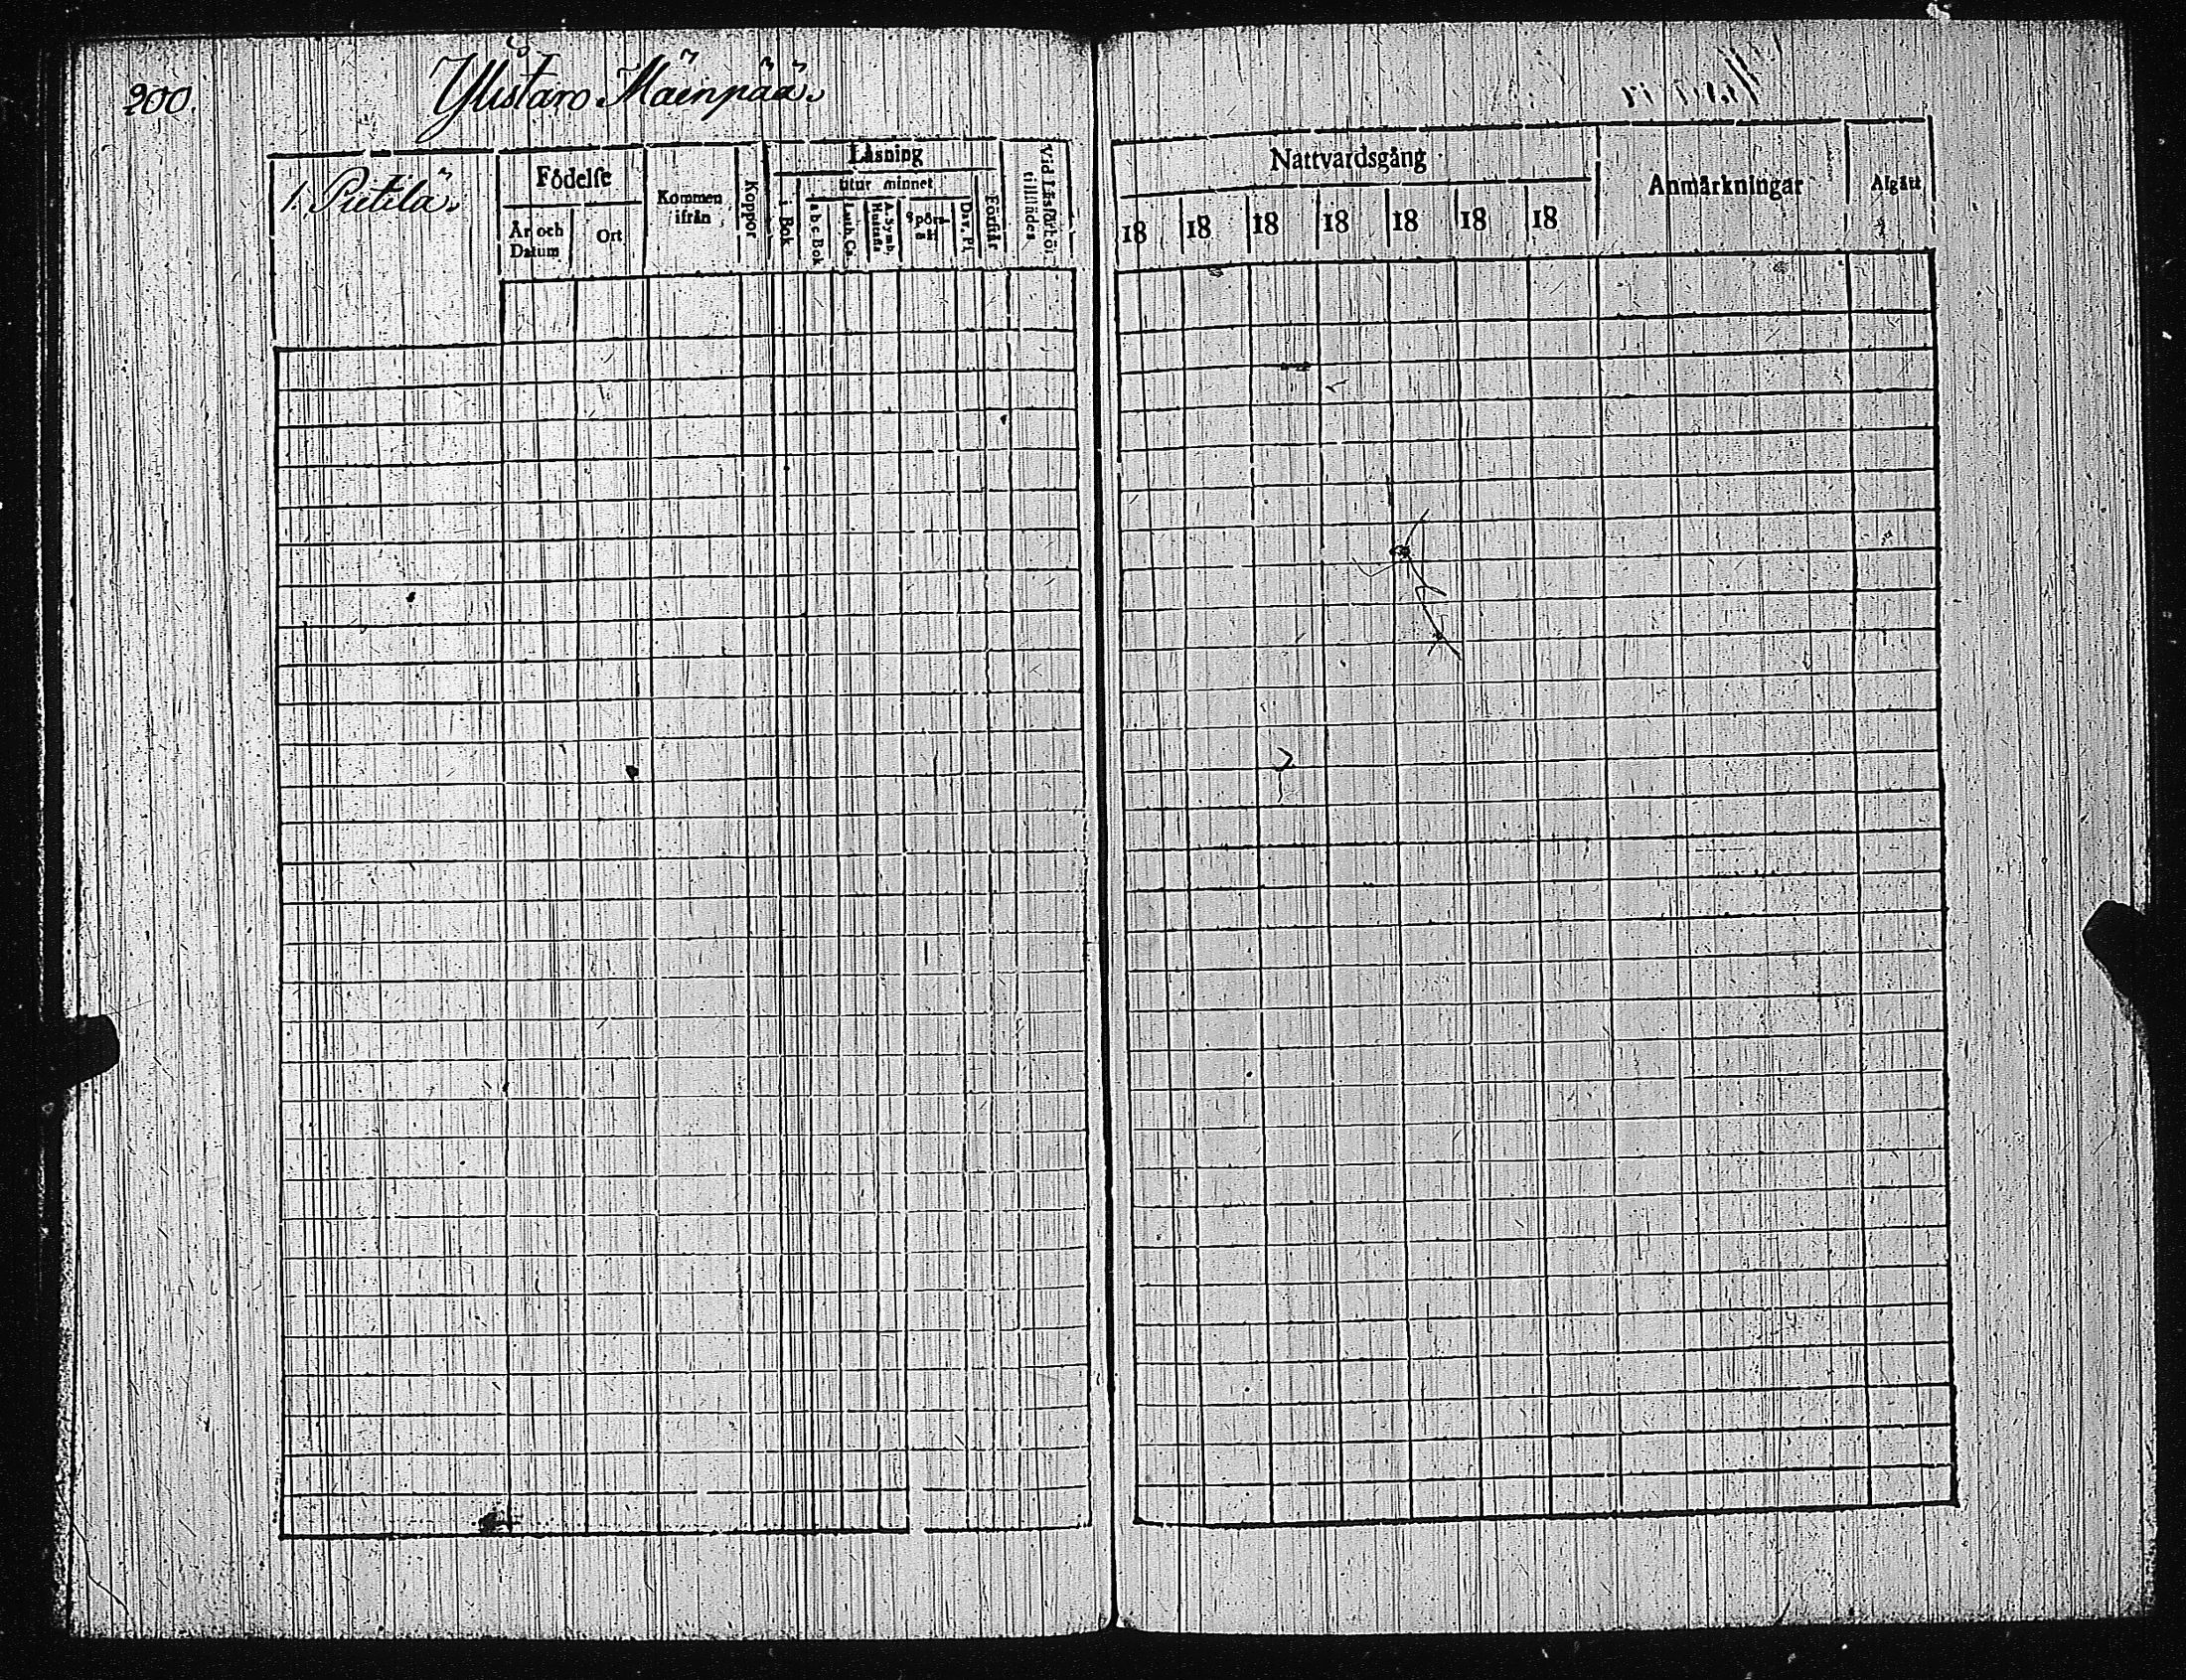 200.
Ylistaro Mäenpää.
1. Putila.
Födelse
År och Datum
Ort
Kommen ifrån
Koppor
Läsning
i Bok
utur minnet
a b c Bok
Luth. Ca.
A. Symb. Hustafla
Spörsmål
Dav. Ps.
Förstår
Vid Läsförhör. tillstädes
Nattvardsgång
18 18 18 18 18 18 18
Anmärkningar
Afgått